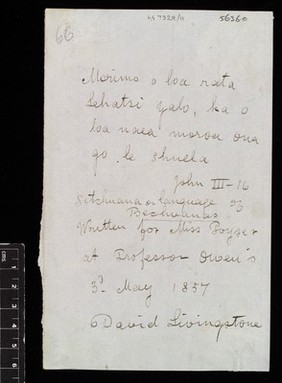 66
56360
Morimo o loa rata
lehatsi yalo, ka o
loa naea moroa ona
go le shuela
John III-16
Sitchuana or language of
Bechuanas
Written for Miss Poyser
at Professor Owen's
3d May 1857
David Livingstone